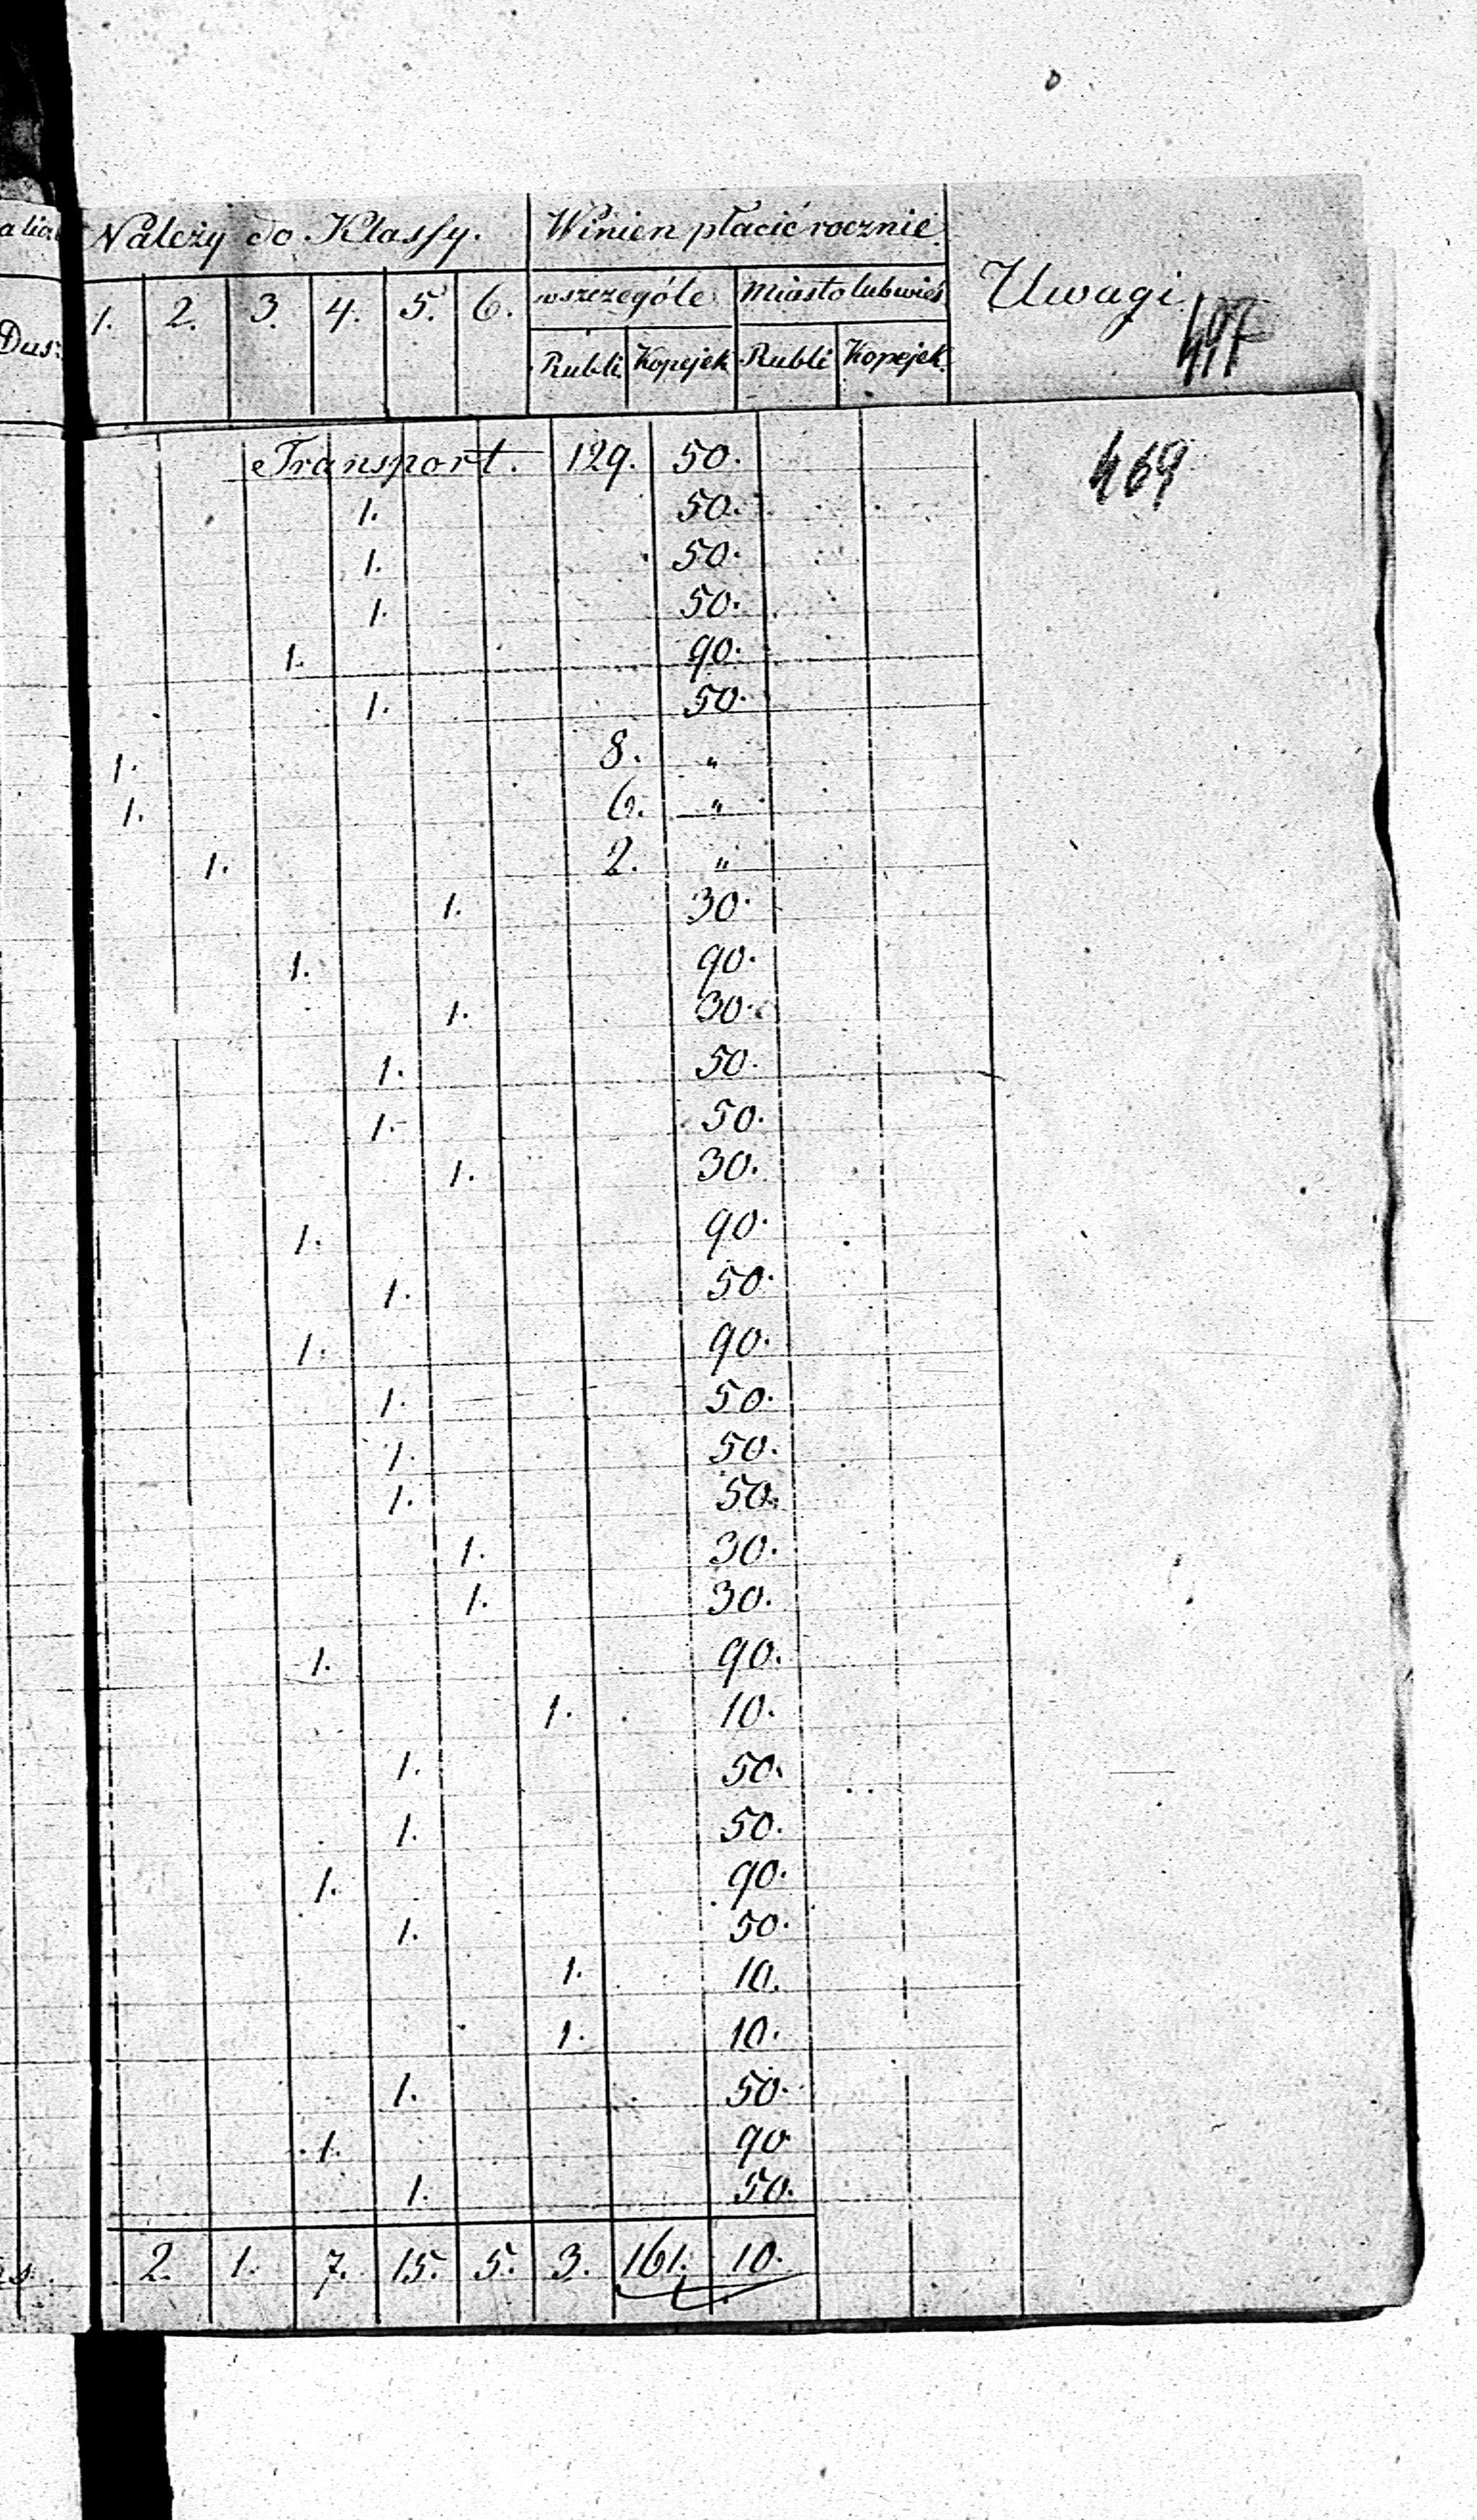 Należy do Klassy. Winien płacić rocznie Uwagi
1. 2. 3. 4. 5. 6. wszczególe Miasto lub wieś
Dus: Rubli Kopejek Rubli Kopejek
Transport. 129. 50. 469
1. 50.
1. 50.
1. 50.
1. 90.
1. 50.
1. 8. "
1. 6. "
1. 2. "
1. 30.
1. 90.
1. 30.
1. 50.
1. 50.
1. 30.
1. 90.
1. 50.
1. 90.
1. 50.
1. 50.
1. 50.
1. 30.
1. 30.
1. 90.
1. 10.
1. 50.
1. 50.
1. 90.
1. 50.
1. 10.
1. 10.
1. 50.
1. 90
1. 50.
2. 1. 7. 15. 5. 3. 161. 10.